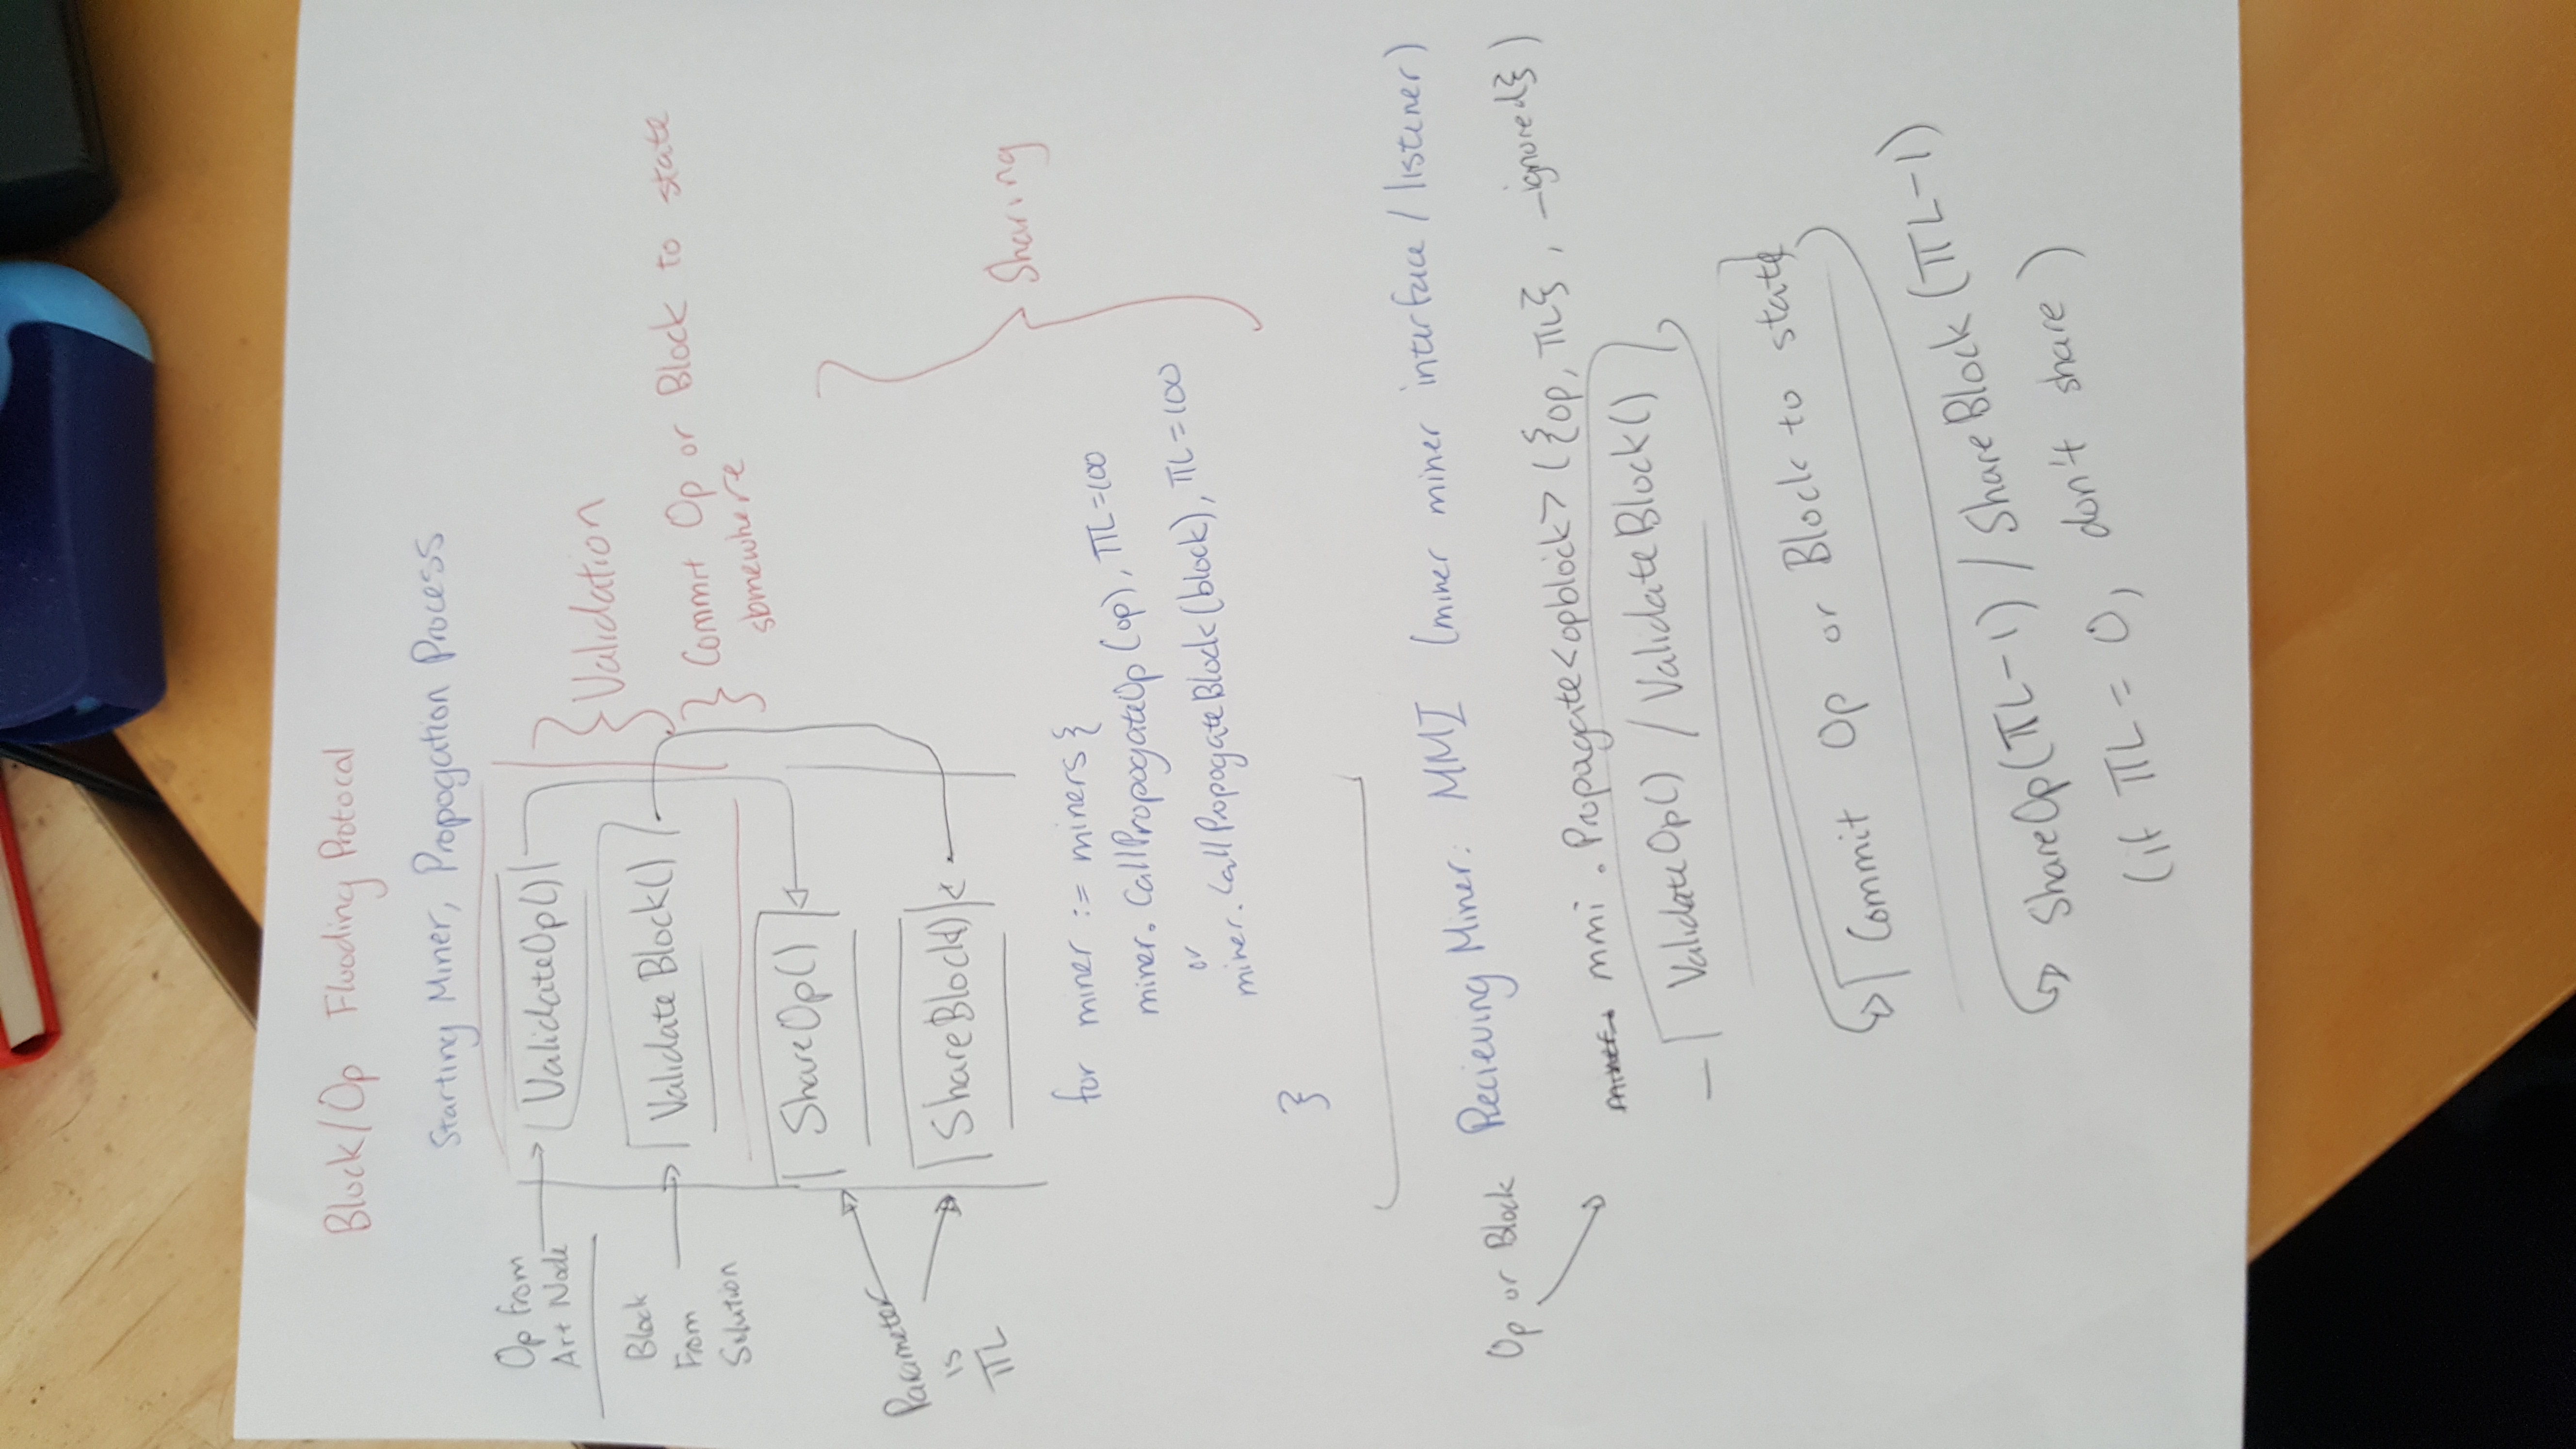 Block/Op Flooding Protocal
Starting Miner, Propogation Process
Op from
Art Node
ValidateOp()
Block
From
Solution
Validate Block()
Validation
Commit Op or Block to state
somewhere
ShareOp()
Parameter
is
TTL
ShareBlock()
Sharing
for miner := miners {
miner. CallPropogateOp (op), TTL=100
or
miner. CallPropogateBlock (block), TTL=100
}
Op or Block
Recieving Miner: MMI (miner miner interface / listener)
miner. mmi . Propagate<opblock> ({op, TTL} , _ignored})
– ValidateOp() / ValidateBlock()
Commit Op or Block to state
ShareOp(TTL-1) / ShareBlock (TTL-1)
(if TTL = 0, don't share )